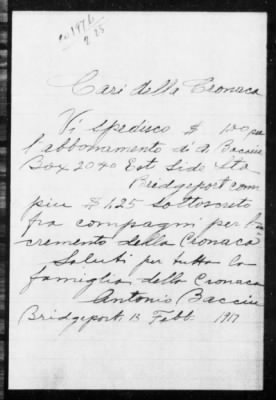 2.25
Cari della Cronaca
Vi spedisco $ 1.00 per
l'abbonamento d'A Baccini
Box 2040 East Side Sta
Bridgeport Conn
piu $ 1.25 sottoscrto
fra compagni per l'in
cremento della Cronaca
Saluti per tutta la
famiglia della Cronaca
Antonio Baccini
Bridgeport 13 Febb. 1917